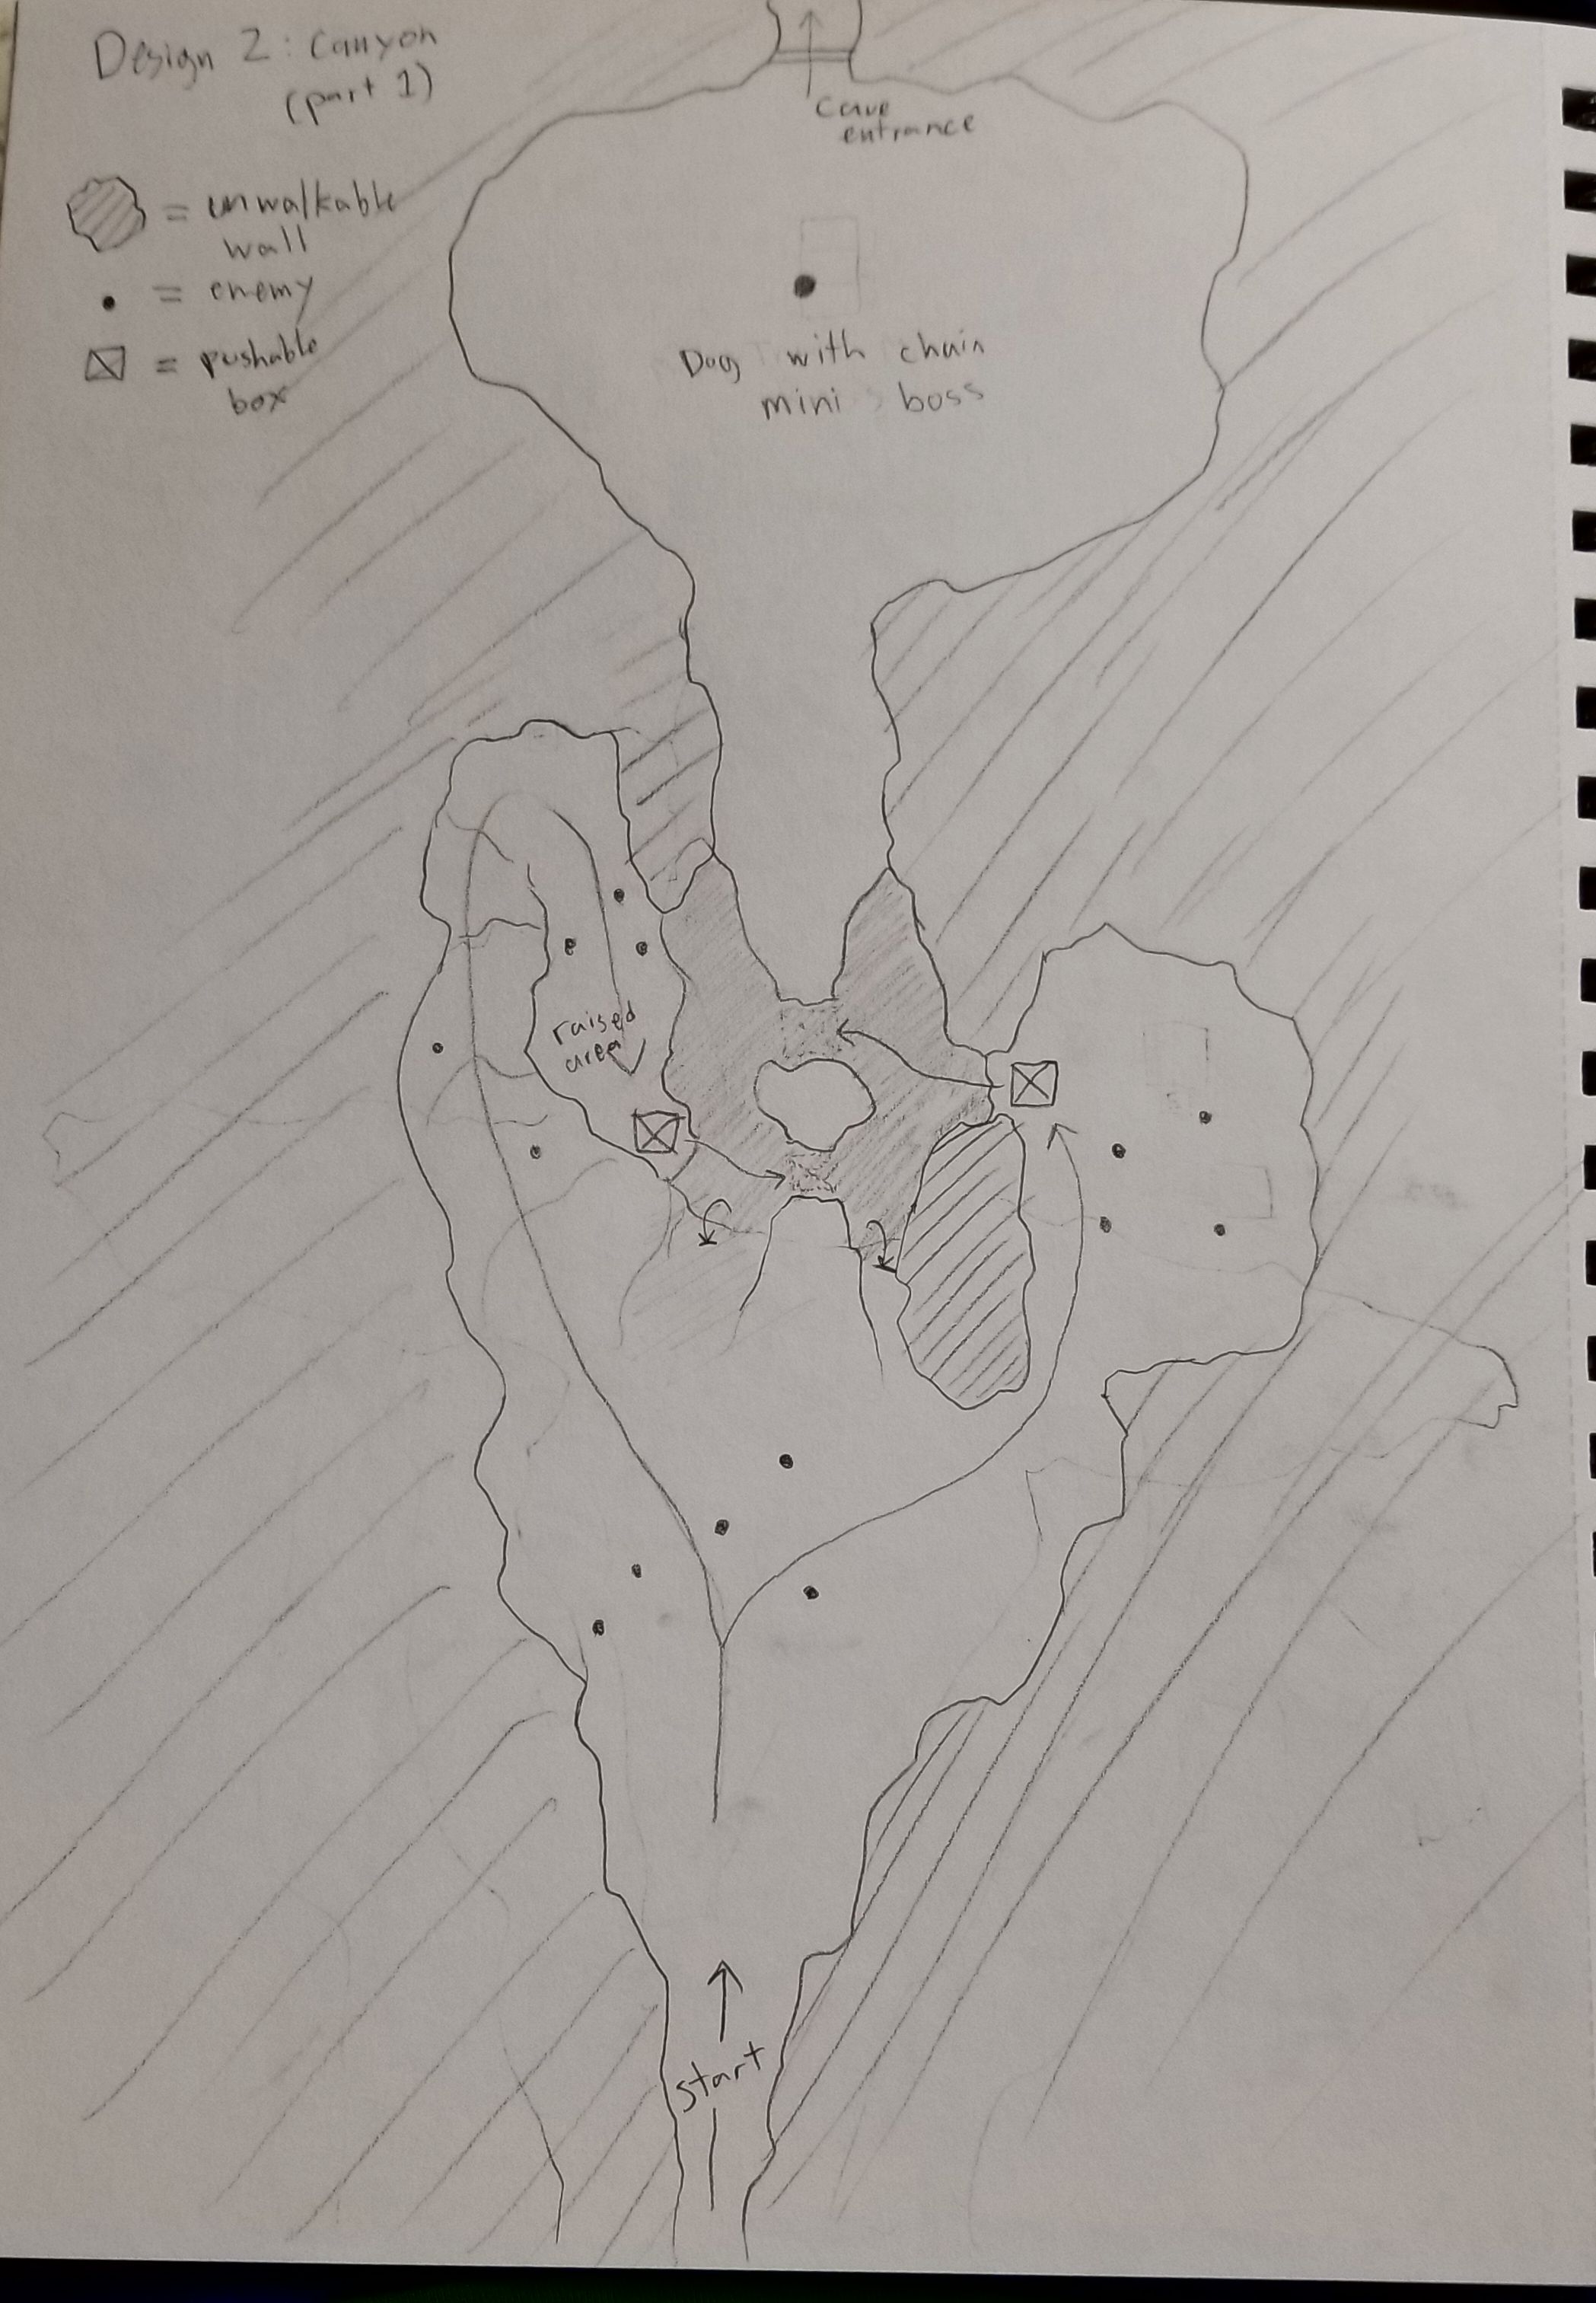 Design 2: Canyon
(part 1)
= unwalkable
wall
= enemy
= pushable
box
Cave
entrance
Dog with chain
mini boss
raised
area
start